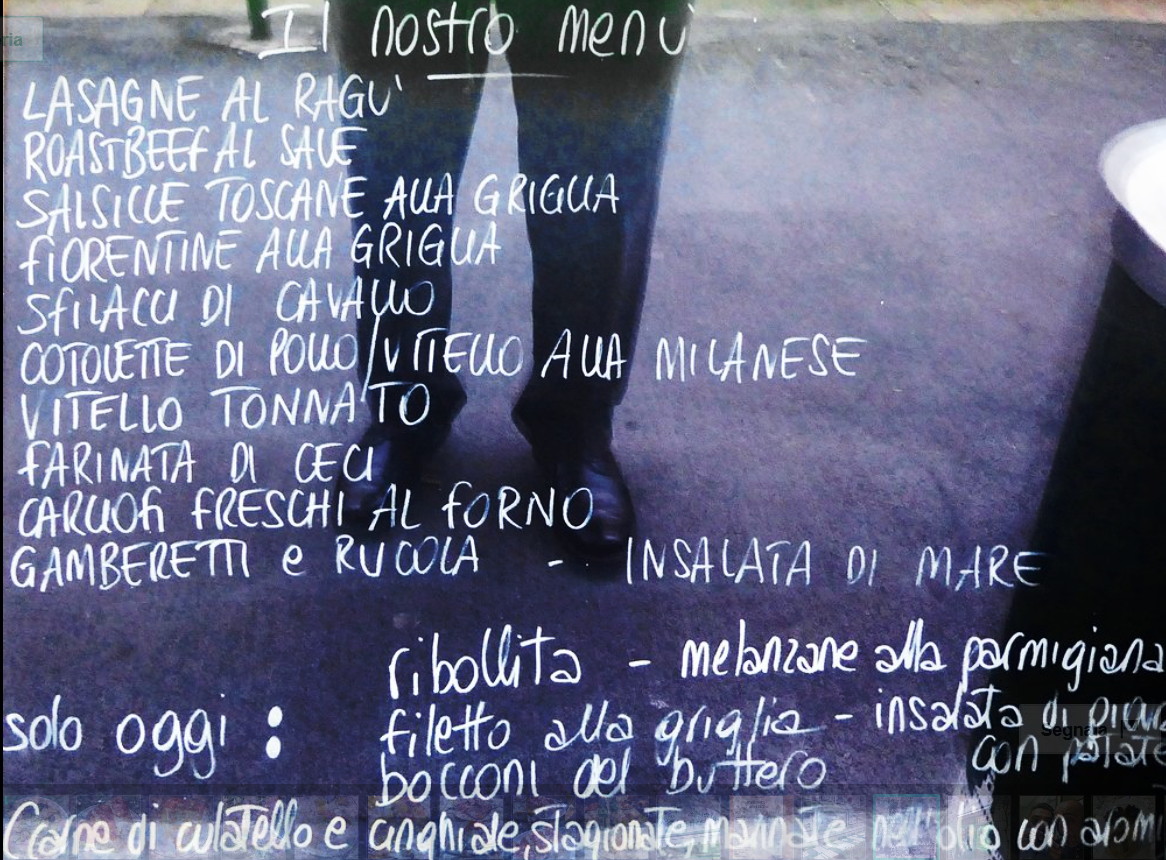 Il nostro menu'
LASAGNE AL RAGU'
ROASTBEEF AL SALE
SALSICCE TOSCANE ALLA GRIGLIA
FIORENTINE ALLA GRIGLIA
SFILACCI DI CAVALLO
COTOLETTE DI POLLO/VITELLO ALLA MILANESE
VITELLO TONNATO
FARINATA DI CECI
CARCIOFI FRESCHI AL FORNO
GAMBERETTI e RUCOLA - INSALATA DI MARE
ribollita - melanzane alla parmigiana
solo oggi : filetto alla griglia - insalata di
Segnala
bocconi del buttero con patate
Carne di culatello e cinghiale, stagionate, marinate nell'olio con aromi